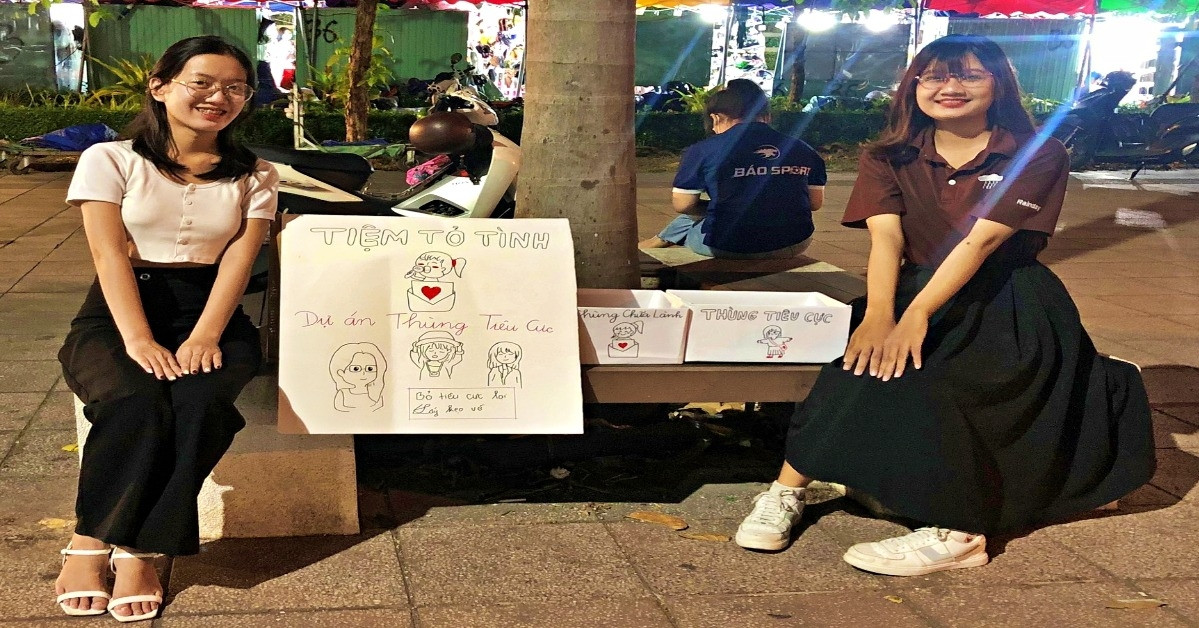 36
BẢO SPORT
Rainday
TIỆM TỎ TÌNH
Dự án Thùng Tiêu Cực
Bỏ tiêu cực lại
Lấy kẹo về
Thùng Chữa Lành
THÙNG TIÊU CỰC